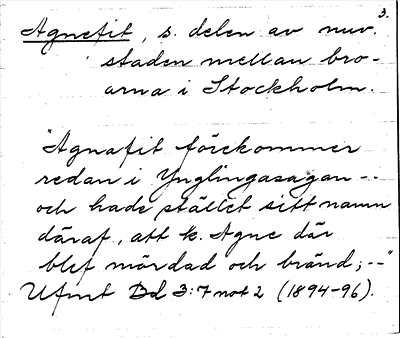 3.
Agnefit, s. delen av nuv.
staden mellan bro-
arna i Stockholm.
"Agnafit förekommer
redan i Ynglingasagan --
och hade stället sitt namn
däraf, att k. Agne där
blef mördad och bränd; --"
Ufmt Bd 3:7 not 2 (1894-96).